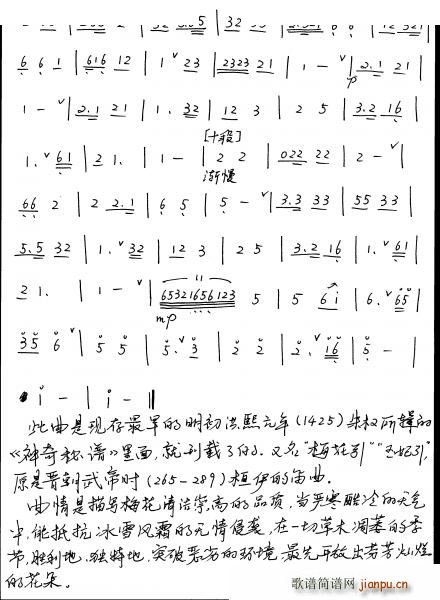 6 6 1 | 616 12 | 1 ˅ 23 | 2323 21 | 1 - ˅ | 2.1 21 |
p
1 - ˅ | 2.1 21 | 1. 32 | 12 3 | 2 5 | 3.2 16 |
[十段]
1. ˅ 61 | 2 1. | 1 - | 2 2 | 022 22 | 2 - ˅ |
渐慢
66 2 | 2 2.1 | 6 5 | 5 - ˅ | 3.3 33 | 55 33 |
5.5 32 | 1. ˅ 32 | 12 3 | 2 5 | 3.2 16 | 1. ˅ 61 |
2 1. | 1 - ˅ | 65321656123 5 | 5 6i | 6. ˅ 65 |
mp
35 6 ˅ | 5 5 | 5. ˅ 3 | 2 2 | 2. ˅ 16 | 5 - |
i - | i - ‖
此曲是现存最早的明初洪熙元年(1425)朱权所辑的
《神奇秘谱》里面,就刊载了的。又名"梅花引""玉妃引",
原是晋朝武帝时(265-289)桓伊的笛曲。
曲情是描写梅花清洁崇高的品质,当严寒酷冷的天气
中,能抵抗冰雪风霜的无情侵袭,在一切草木凋萎的季
节,胜利地、独特地,突破恶劣的环境,最先开放出芬芳灿烂
的花朵。
歌谱简谱网
jianpu.cn